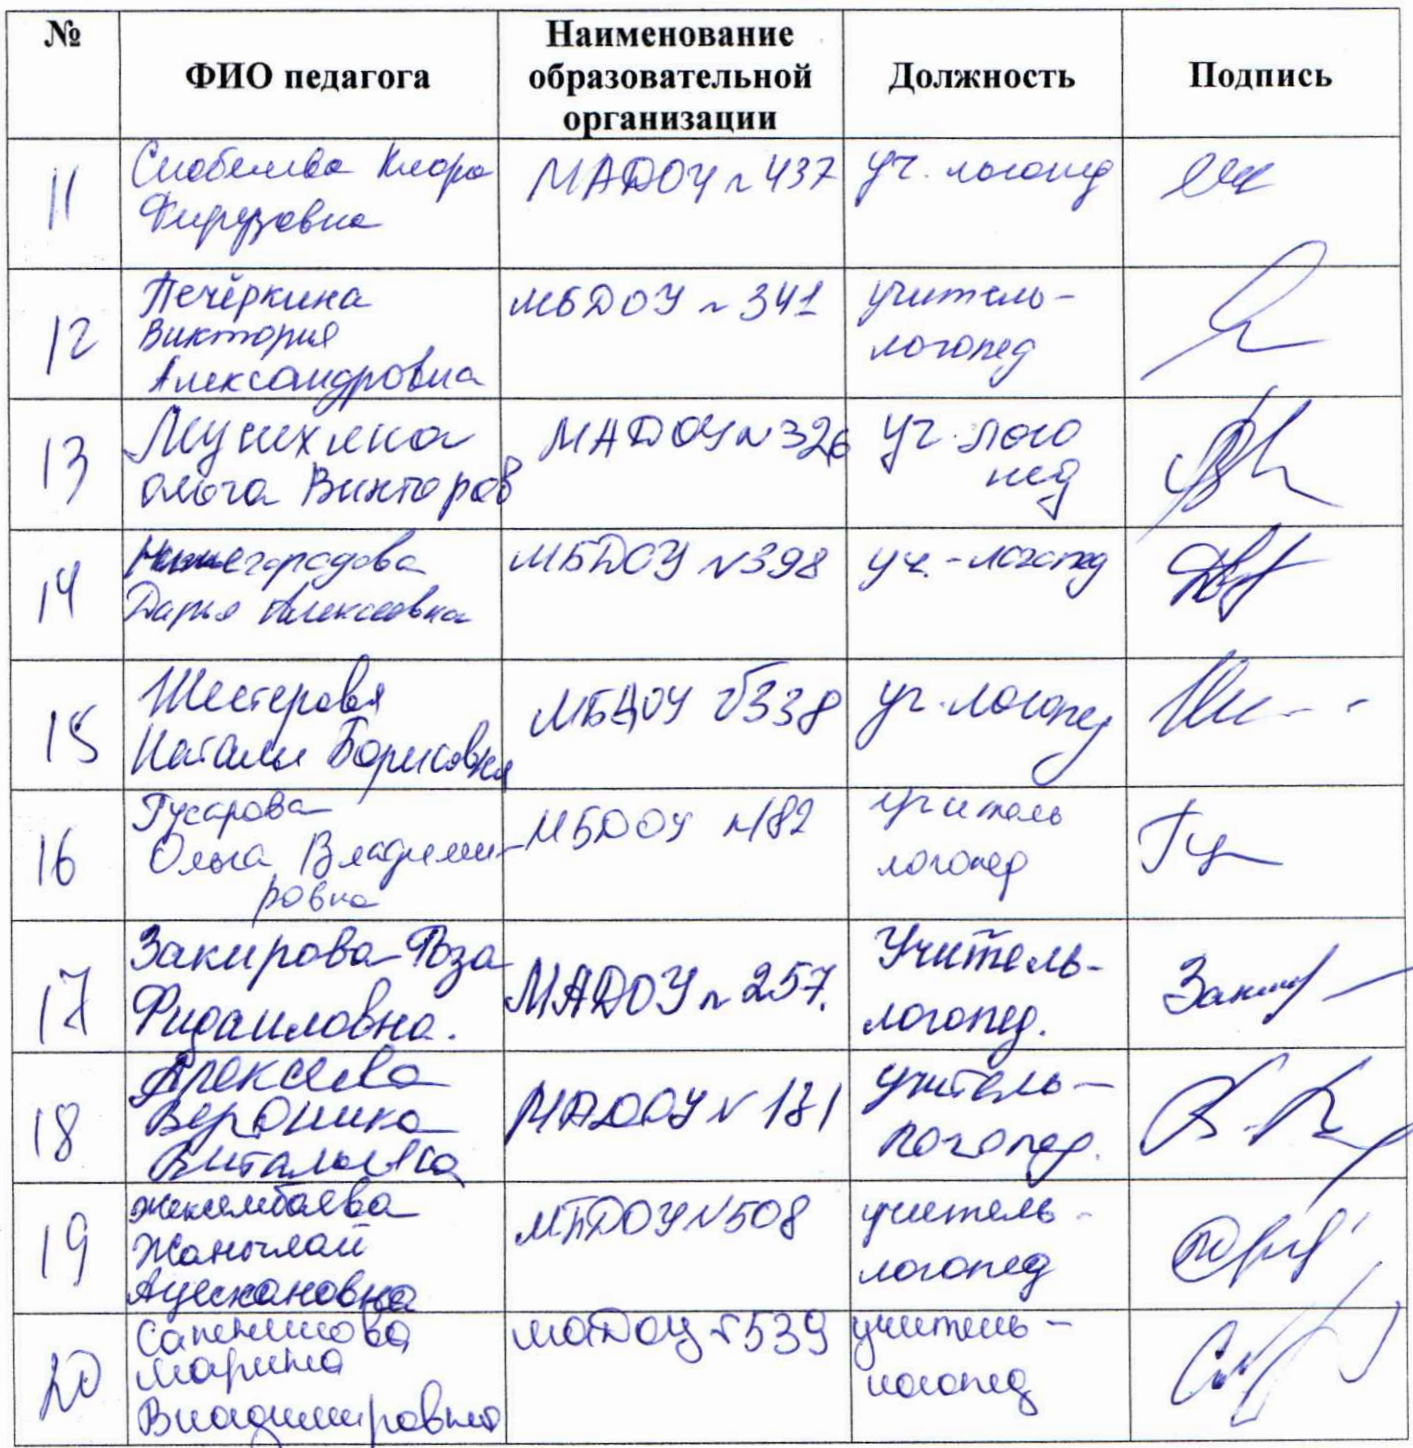 №
ФИО педагога
Наименование
образовательной
организации
Должность
Подпись
11
Скобелева Клара
Фирузовна
МАДОУ №437
уч. логопед
12
Печёркина
Виктория
Александровна
МБДОУ №341
учитель-
логопед
13
Мусихина
Ольга Викторов
МАДОУ №326
уч. лого
пед
14
Нижегородова
Дарья Алексеевна
МБДОУ №398
уч.-логопед
15
Шестерова
Наталья Борисовна
МБДОУ №338
уч. логопед
16
Гусарова
Ольга Владими-
ровна
МБДОУ №182
учитель
логопед
17
Закирова Роза
МАДОУ №257.
Учитель-
логопед.
18
Алексеева
Вероника
Витальевна
МАДОУ №181
учитель-
логопед.
19
Жексембаева
МБДОУ №508
учитель-
логопед
20
Марина
Владимировна
МАДОУ №539
учитель-
логопед